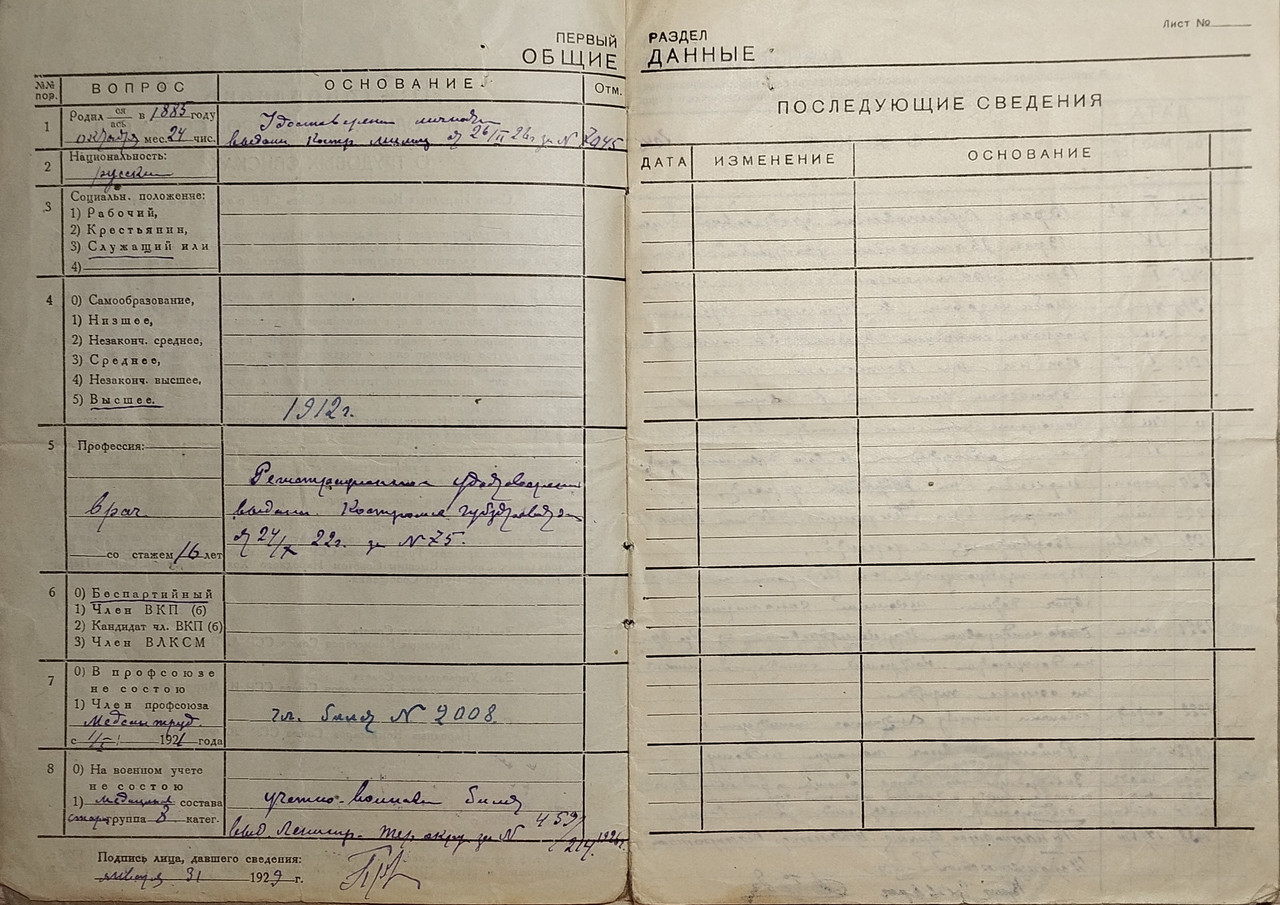 Лист №
ПЕРВЫЙ РАЗДЕЛ
ОБЩИЕ ДАННЫЕ
№№ пор. ВОПРОС ОСНОВАНИЕ Отм.
1 Родил ся ась в 1885 году
октября мес. 24 чис.
Удостоверени личности
выдан. Костр. милиц от 26/II 26г за № 7045
2 Национальность:
русский
3 Социальн. положение:
1) Рабочий,
2) Крестьянин,
3) Служащий или
4)
4 0) Самообразование,
1) Низшее,
2) Незаконч. среднее,
3) Среднее,
4) Незаконч. высшее,
5) Высшее. 1912 г.
5 Профессия:
врач
со стажем 16 лет
Регистрационное удостоверение
выдан. Костром
от 24/X 22г. за № 75.
6 0) Беспартийный
1) Член ВКП (б)
2) Кандидат чл. ВКП (б)
3) Член ВЛКСМ
7 0) В профсоюзе
не состою
1) Член профсоюза
Медсантруд
с 1921 года
чл. билет № 2008
8 0) На военном учете
не состою
1) состава
группа 8 катег.
учетно-воинский билет
выд. Ленингр. тер. окру за № 459/214. 1926г.
Подпись лица, давшего сведения:
января 31 1929 г.
ПОСЛЕДУЮЩИЕ СВЕДЕНИЯ
ДАТА ИЗМЕНЕНИЕ ОСНОВАНИЕ